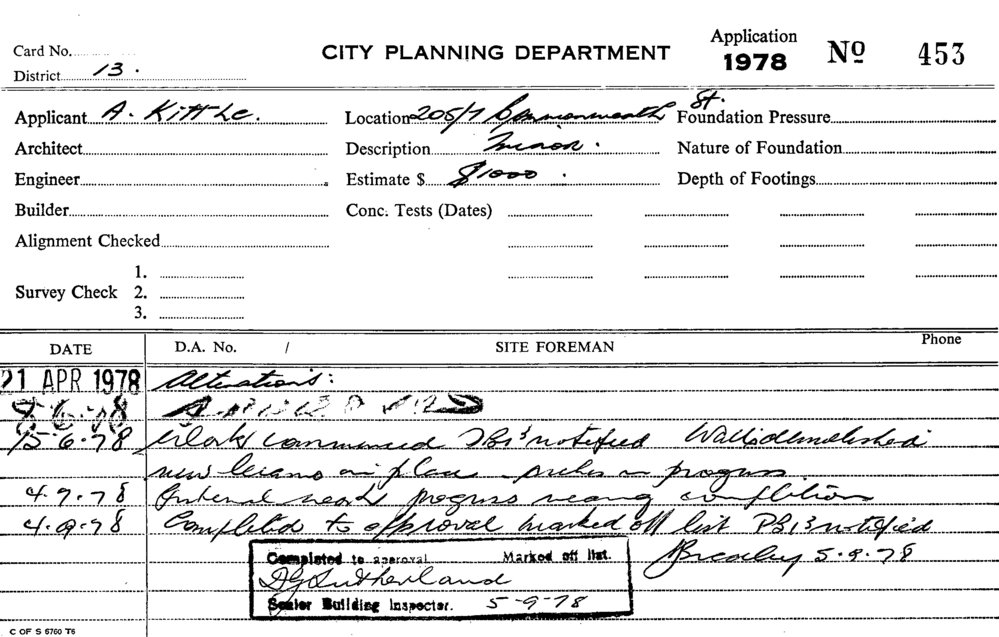 Card No.
CITY PLANNING DEPARTMENT
Application
1978 No 453
District 13.
Applicant A. Kittle.
Location 205/7 Commonwealth St.
Foundation Pressure
Architect
Description Minor.
Nature of Foundation
Engineer
Estimate $ $1000.
Depth of Footings
Builder
Conc. Tests (Dates)
Alignment Checked
Survey Check
1.
2.
3.
DATE D.A. No. / SITE FOREMAN Phone
21 APR 1978 Alterations:
15-6-78 Work commenced PBI's notified Walls demolished
new beams in place in progress
4.7.78 Internal work progress nearing complition
4.9.78 Completed to approval marked off list PBI's notified
5.9.78
Completed to approval Marked off list.
DG Sutherland
Senior Building Inspector. 5-9-78
C OF S 6760 T6